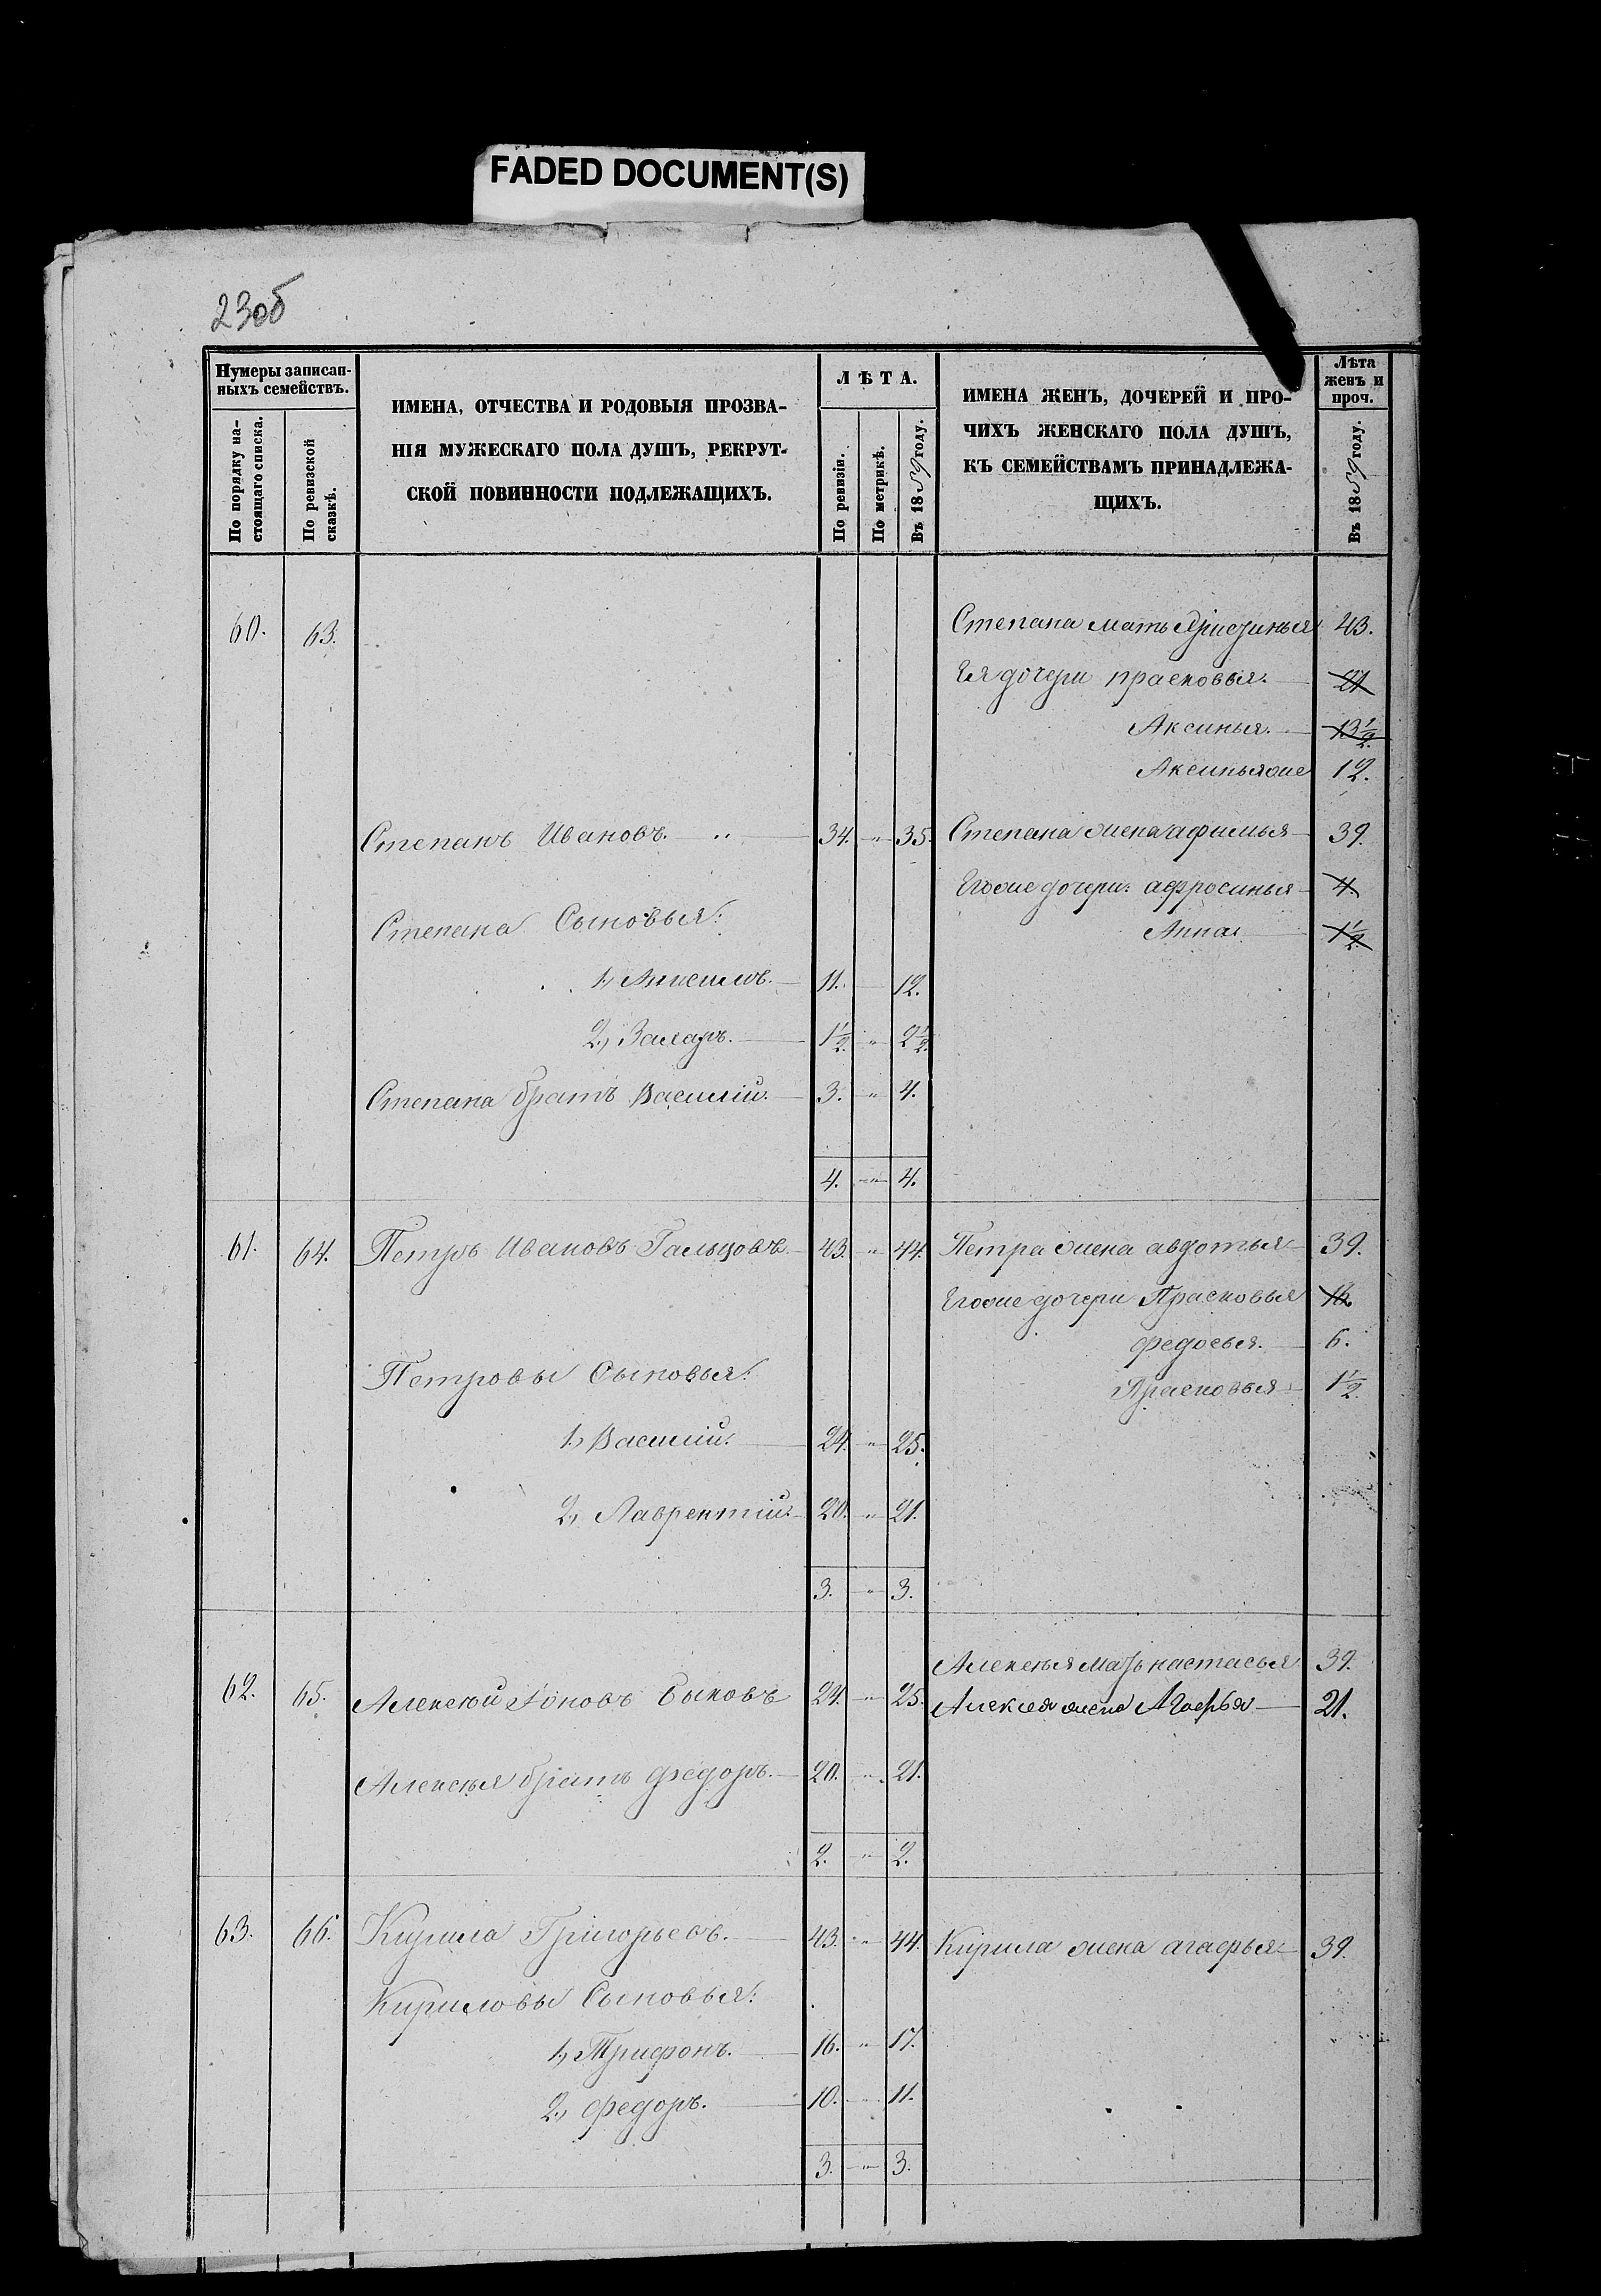 FADED DOCUMENT(S)
23об
Нумеры записан-
ныхъ семействъ.
По порядку на-
стоящаго списка.
По ревизской
сказкѣ.
ИМЕНА, ОТЧЕСТВА И РОДОВЫЯ ПРОЗВА-
НІЯ МУЖЕСКАГО ПОЛА ДУШЪ, РЕКРУТ-
СКОЙ ПОВИННОСТИ ПОДЛЕЖАЩИХЪ.
ЛѢТА.
По ревизіи.
По метрикѣ.
Въ 1859 году.
ИМЕНА ЖЕНЪ, ДОЧЕРЕЙ И ПРО-
ЧИХЪ ЖЕНСКАГО ПОЛА ДУШЪ,
КЪ СЕМЕЙСТВАМЪ ПРИНАДЛЕЖА-
ЩИХЪ.
Лѣта
женъ и
проч.
Въ 1859 году.
60. 63. Степана мать 43.
Ея дочери прасковья. 21
Аксинья. 13 1/2.
Аксиньяже 12.
Степанъ Ивановъ. 34. " 35. Степана жена афимья 39.
Егоже дочери: афросинья 4.
Степана Сыновья: Анна 1 1/2.
1, 11. 12.
2, Захаръ. 1 1/2. " 2 1/2.
Степана братъ Василій. 3. " 4.
4. " 4.
61. 64. Петръ Ивановъ Гальцовъ 43. " 44. Петра жена авдотья 39.
Егоже дочери Прасковья 16
федосья. 6.
Петровы Сыновья: Прасковья 1 1/2.
1, Василій. 24. " 25.
2, Лаврентій. 20. " 21.
3. " 3.
Алексѣя мать настасья 39.
62. 65. Алексѣй Быковъ 24. " 25. Алексея жена Агафья 21.
Алексѣя братъ федоръ. 20. " 21.
2. " 2.
63. 66. Кирила Григорьевъ. 43. " 44. Кирила жена агафья 39.
Кириловы Сыновья:
1, Трифонъ. 16. " 17.
2, федоръ. 10. 11.
3. " 3.